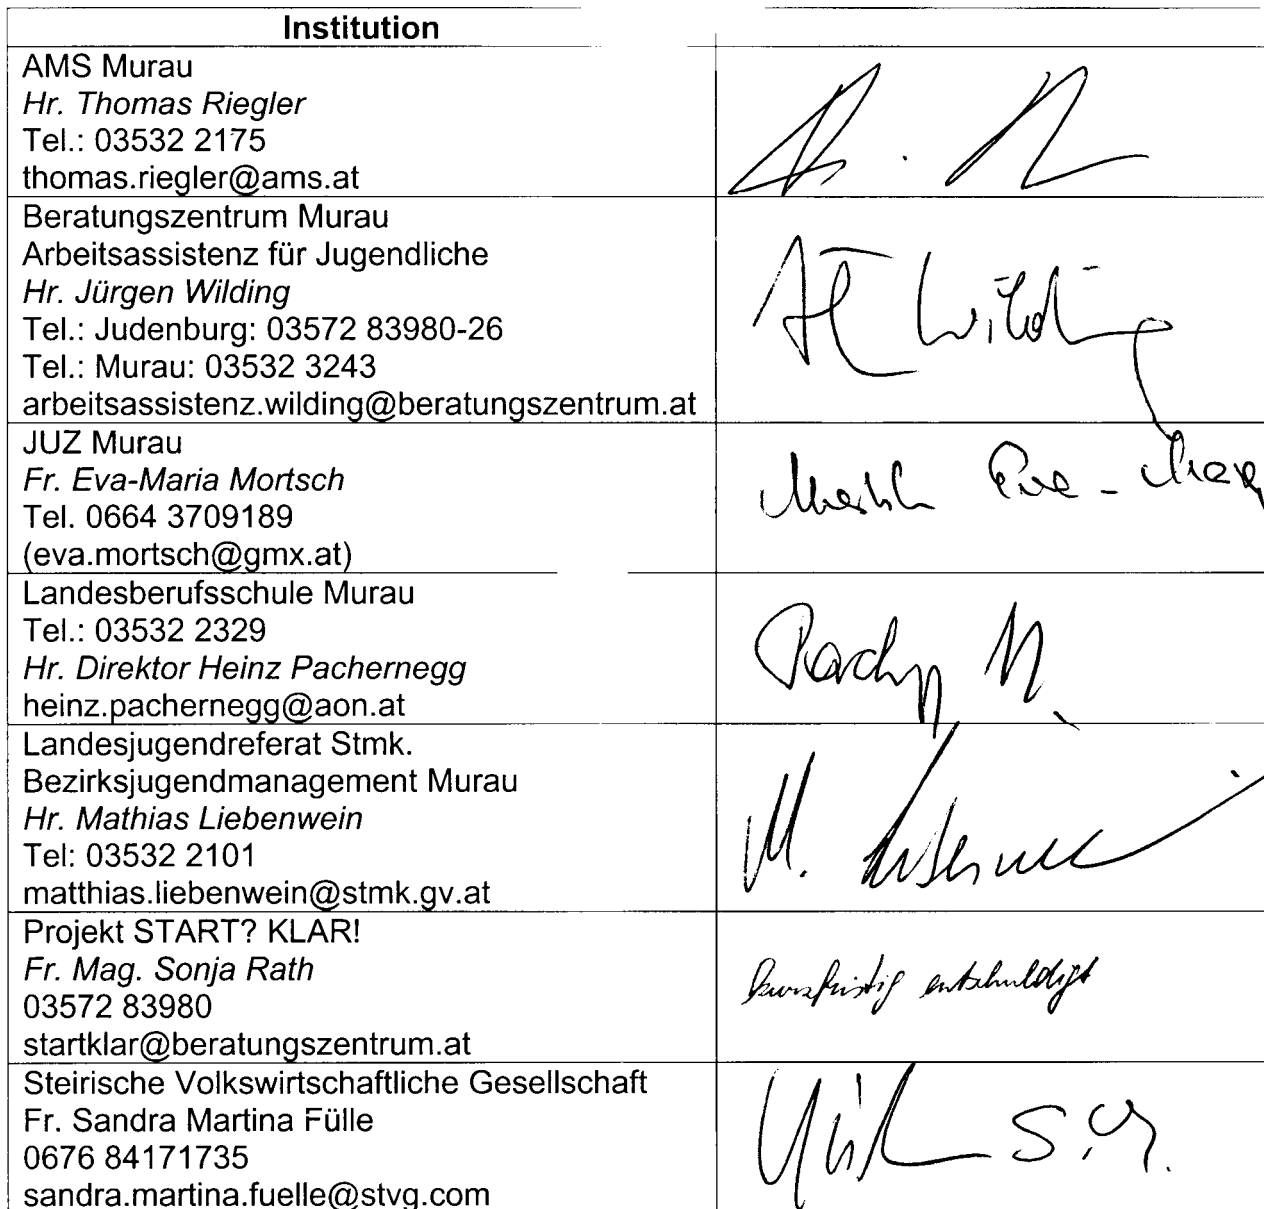 Institution
AMS Murau
Hr. Thomas Riegler
Tel.: 03532 2175
thomas.riegler@ams.at
Beratungszentrum Murau
Arbeitsassistenz für Jugendliche
Hr. Jürgen Wilding
Tel.: Judenburg: 03572 83980-26
Tel.: Murau: 03532 3243
arbeitsassistenz.wilding@beratungszentrum.at
Wilding
JUZ Murau
Fr. Eva-Maria Mortsch
Tel. 0664 3709189
(eva.mortsch@gmx.at)
Mortsch Eva-Maria
Landesberufsschule Murau
Tel.: 03532 2329
Hr. Direktor Heinz Pachernegg
heinz.pachernegg@aon.at
Landesjugendreferat Stmk.
Bezirksjugendmanagement Murau
Hr. Mathias Liebenwein
Tel: 03532 2101
matthias.liebenwein@stmk.gv.at
Projekt START? KLAR!
Fr. Mag. Sonja Rath
03572 83980
startklar@beratungszentrum.at
kurzfristig entschuldigt
Steirische Volkswirtschaftliche Gesellschaft
Fr. Sandra Martina Fülle
0676 84171735
sandra.martina.fuelle@stvg.com